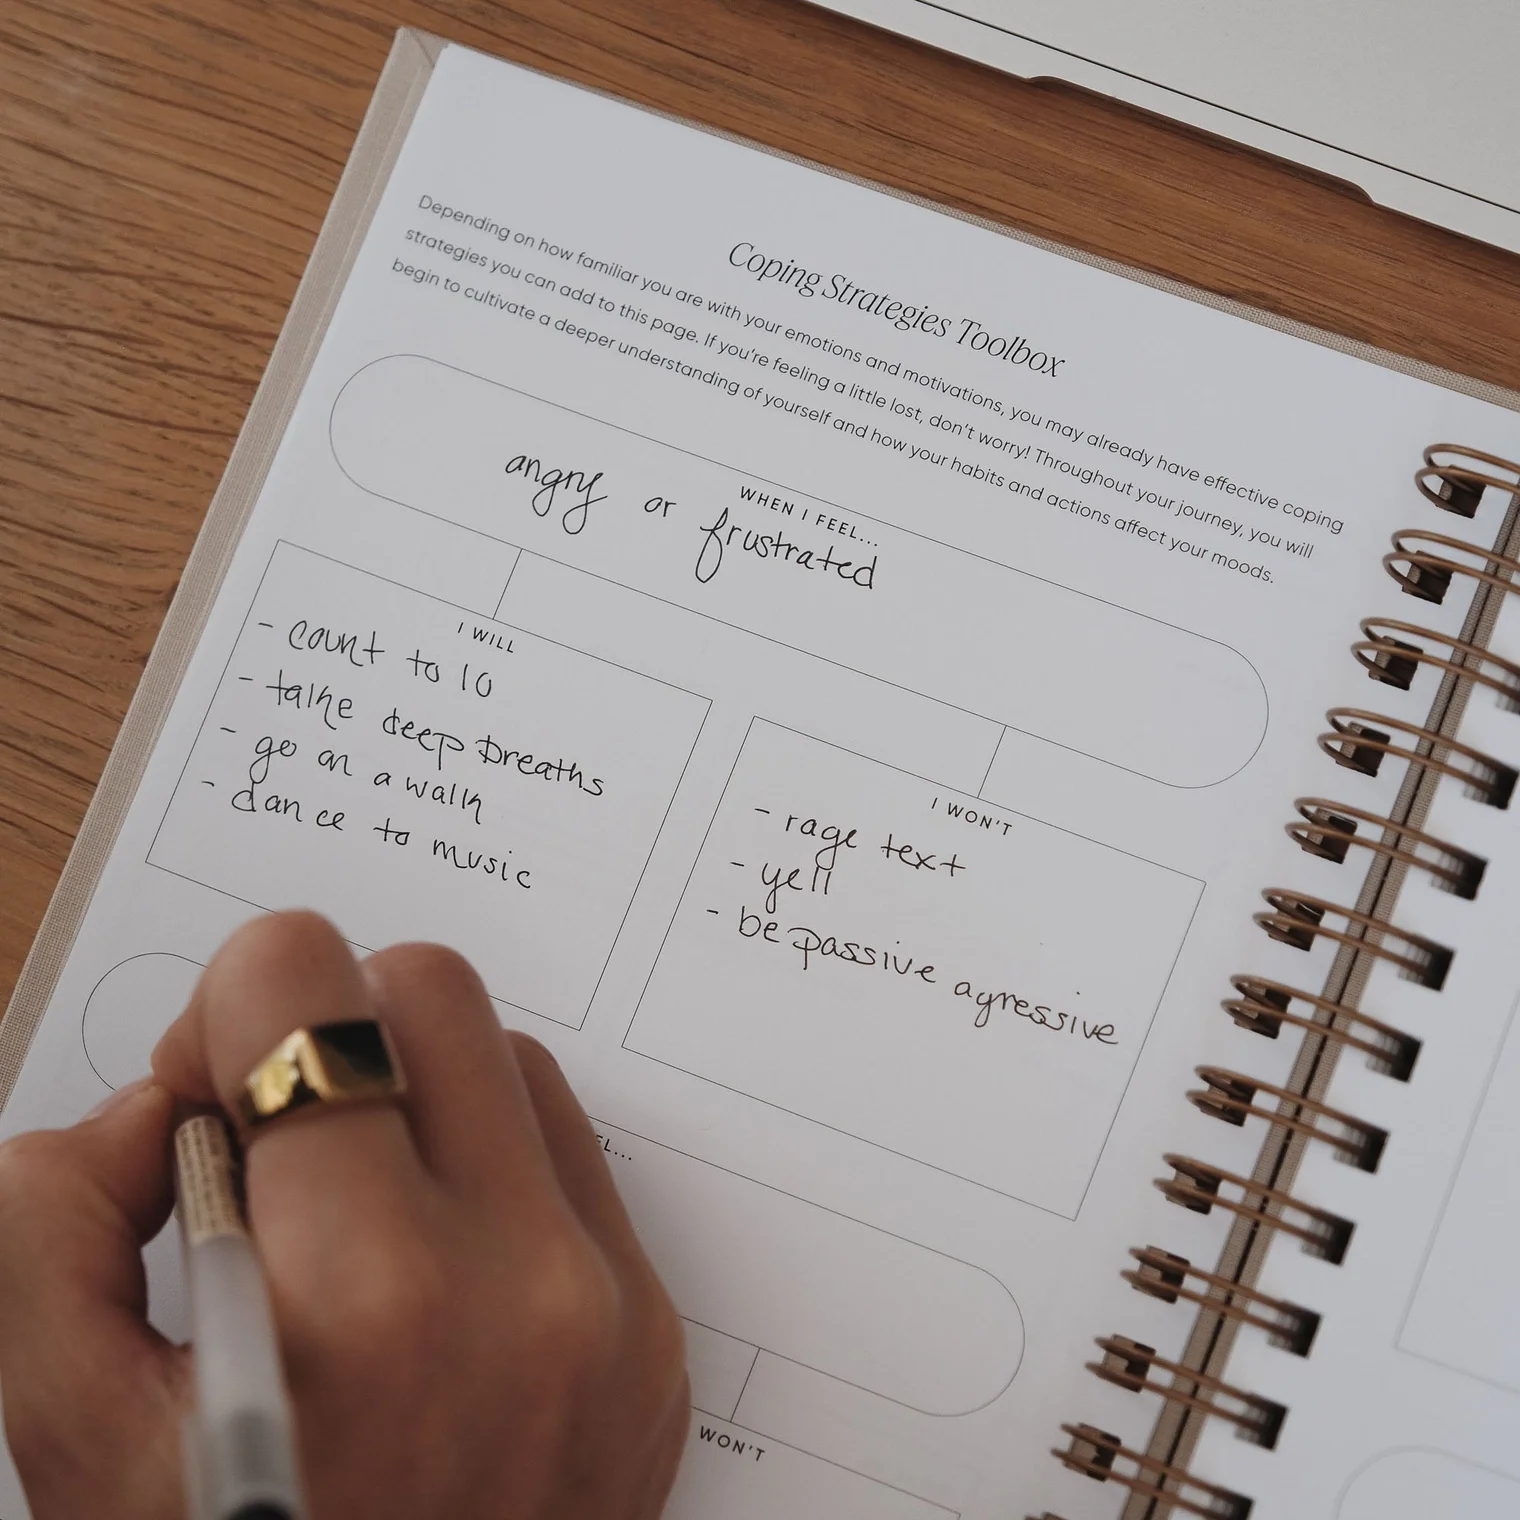 Coping Strategies Toolbox
Depending on how familiar you are with your emotions and motivations, you may already have effective coping
strategies you can add to this page. If you're feeling a little lost, don't worry! Throughout your journey, you will
begin to cultivate a deeper understanding of yourself and how your habits and actions affect your moods.
WHEN I FEEL...
angry or frustrated
I WILL
- count to 10
- take deep breaths
- go on a walk
- dance to music
I WON'T
- rage text
- yell
- be passive agressive
EL...
WON'T